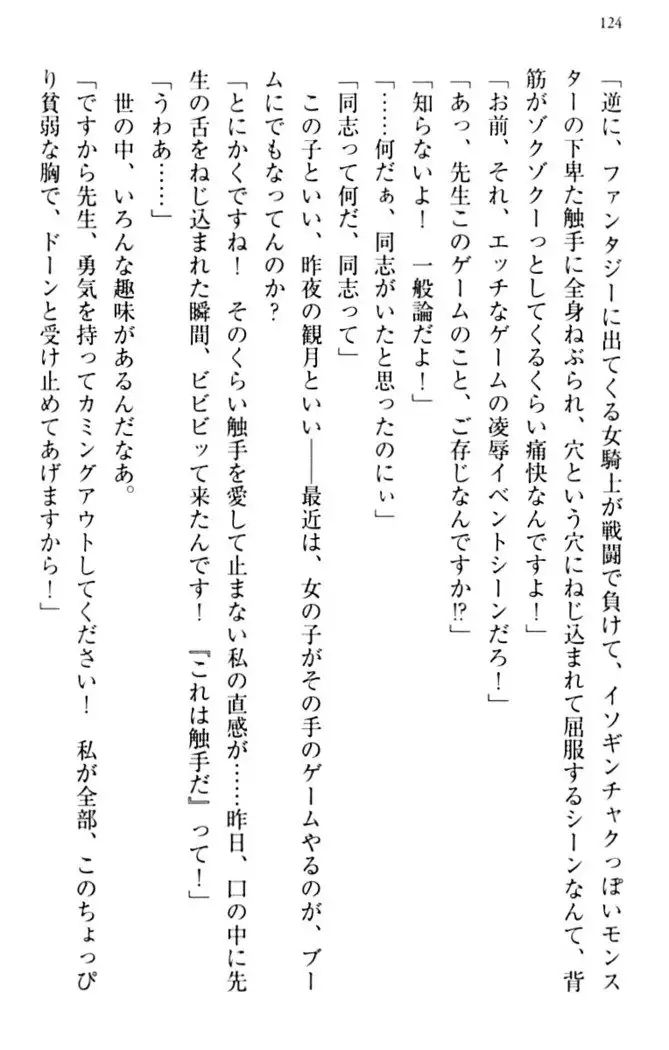 124
「逆に、ファンタジーに出てくる女騎士が戦闘で負けて、イソギンチャクっぽいモンス
ターの下卑た触手に全身ねぶられ、穴という穴にねじ込まれて屈服するシーンなんて、背
筋がゾクゾクーっとしてくるくらい痛快なんですよ！」
「お前、それ、エッチなゲームの凌辱イベントシーンだろ！」
「あっ、先生このゲームのこと、ご存じなんですか!?」
「知らないよ！　一般論だよ！」
「……何だぁ、同志がいたと思ったのにぃ」
「同志って何だ、同志って」
この子といい、昨夜の観月といい――最近は、女の子がその手のゲームやるのが、ブー
ムにでもなってんのか？
「とにかくですね！　そのくらい触手を愛して止まない私の直感が……昨日、口の中に先
生の舌をねじ込まれた瞬間、ビビビッて来たんです！　『これは触手だ』って！」
「うわあ……」
世の中、いろんな趣味があるんだなあ。
「ですから先生、勇気を持ってカミングアウトしてください！　私が全部、このちょっぴ
り貧弱な胸で、ドーンと受け止めてあげますから！」